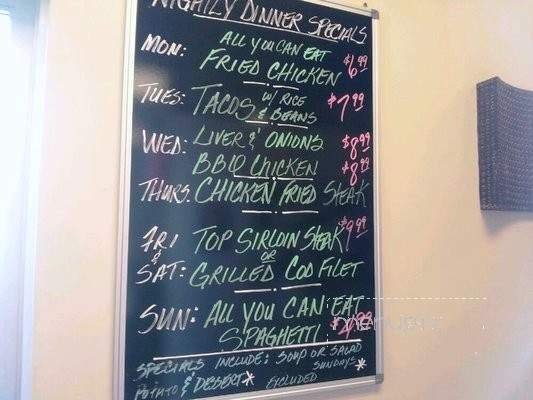 NIGHTLY DINNER SPECIALS
MON: ALL YOU CAN EAT
FRIED CHICKEN $6.99
TUES: TACOS W/ RICE & BEANS $7.99
WED: LIVER & ONIONS $8.99
BBQ CHICKEN $8.99
THURS: CHICKEN FRIED STEAK
FRI & SAT: TOP SIRLOIN STEAK $9.99
OR
GRILLED COD FILET
SUN: ALL YOU CAN EAT
SPAGHETTI
SPECIALS INCLUDE: SOUP OR SALAD
POTATO & DESSERT* SUNDAYS EXCLUDED*